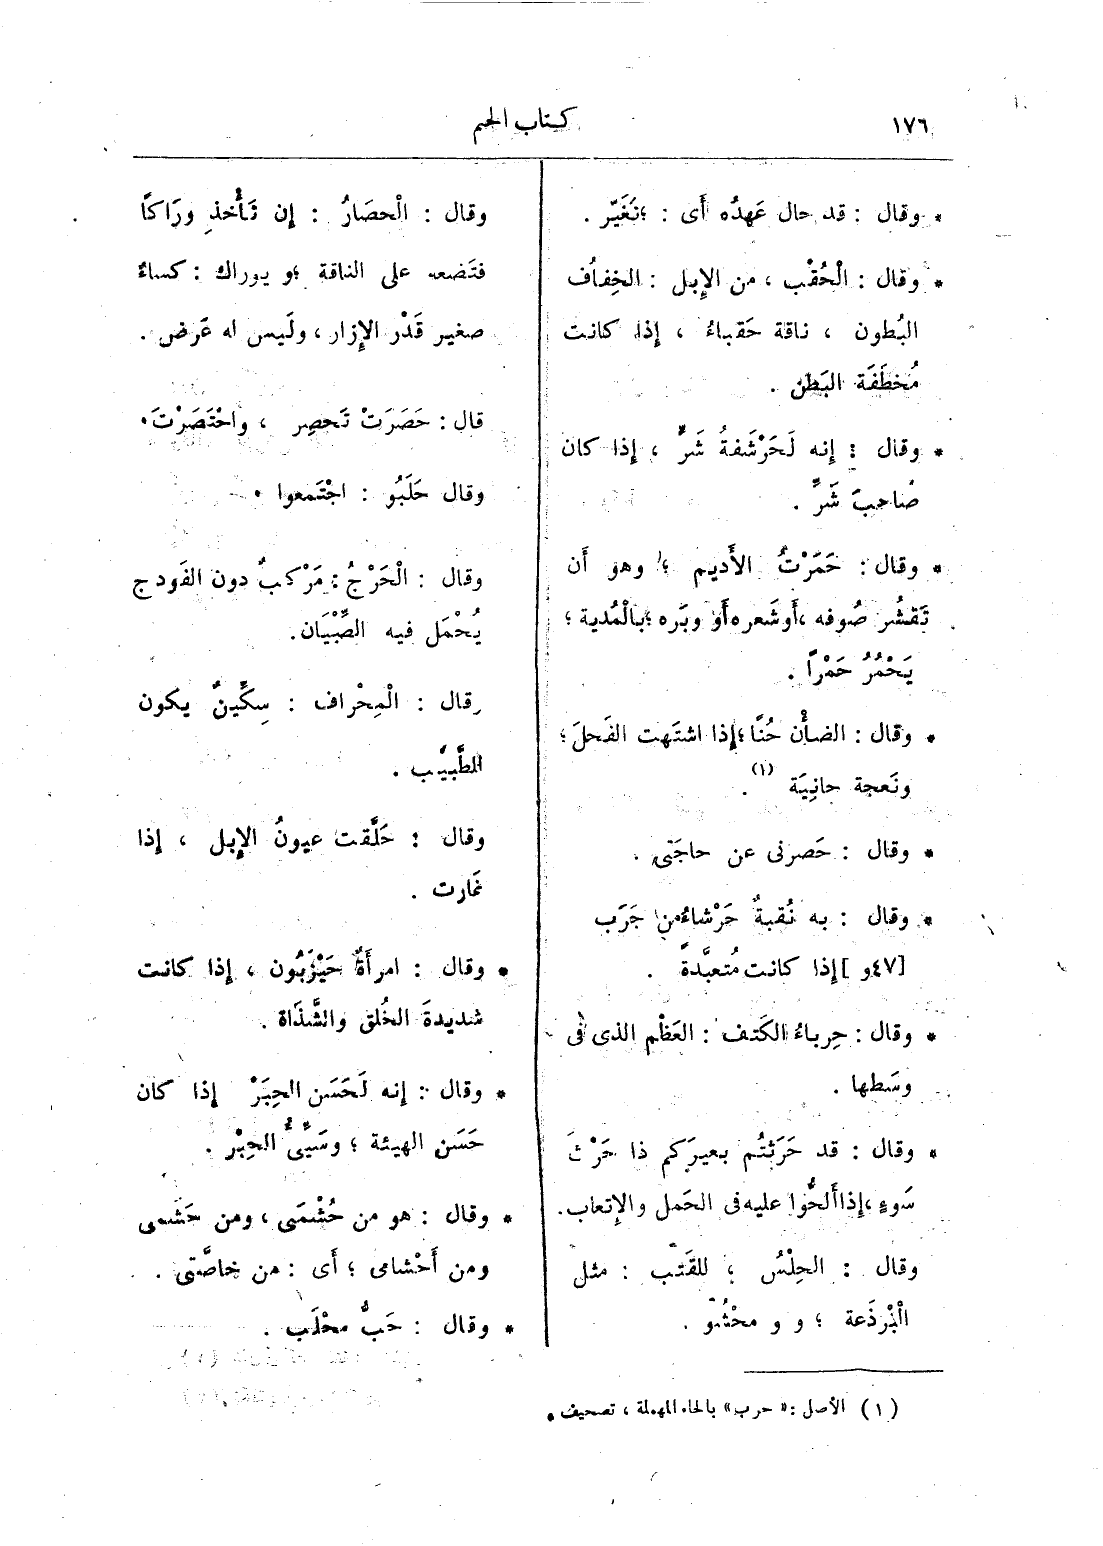 ١٧٦
كتاب الجيم
* وقال : قد حال عَهدُه أَى : تَغَيّر .
* وقال : الْحُقْب ، من الإِبل : الخِفاُف
البُطون ، ناقة حَقباءُ ، إِذا كانت
مُخطَفَة البَطن .
* وقال : إِنه لَحَرْشَفةُ شَرٍّ ، إِذا كان
صاحبَ شَرٍّ .
* وقال : حَمَرْتُ الأَديم ؛ وهو أَن
تَقشُر صُوفه ،أَوشَعره أَو وبَره ؛بالْمُدية ؛
يَحْمُرُ حَمْراً .
* وقال : الضأْن حُنَّا ؛إِذا اشتَهت الفَحلَ ؛
ونَعجة حانِيَة (١) .
* وقال : حَصرنى عن حاجَتى .
* وقال : به نُقبةٌ حَرْشاءُمن جَرَب
[٤٧و ] إِذا كانت مُتعبَّدةً .
* وقال : حِرباءُ الكَتف : العَظْم الذى فى
وسَطها .
* وقال : قد حَرَثتُم بعيرَكم ذا حَرْثَ
سَوءٍ ،إِذا أَلحُّوا عليه فى الحَمل والإِتعاب.
وقال : الحِلْسُ ؛ للقَتَب : مثل
الْبَرْذَعة ؛ و و محْشُوّ .
وقال : الْحصَارُ : إِن تَأْخذ ورَاكًا
فتَضعه على الناقة ؛و يوراك : كساءٌ
صغير قَدْر الإِزار ، ولَيس له عَرض .
قال : حَصَرَتْ تَحصِر ، واحْتَصَرْتَ.
وقال حَلَبُو : اجتَمعوا .
وقال : الْحَرْجُ : مَرْكبٌ دون الهَودج
يُحْمَل فيه الصِّبْيَان.
رقال : الْمِحْراف : سِكِّينٌ يكون
للطَّبيب .
وقال : حَلَّقت عيونُ الإِبل ، إِذا
غارت .
* وقال : امرأَةٌ حَيْزَبُون ، إِذا كانت
شديدةَ الخُلق والشَّذاة .
* وقال : إِنه لَحَسَن الحِبَرْ إِذا كان
حَسَن الهيئة ؛ وسَيِّئُ الحِبْر .
* وقال : هو من حُشْمَى ، ومن حَشَمى
ومن أَحْشامى ؛ أَى : من خاصَّتى .
* وقال : حَبُّ محْلَب .
(١) الأصل : « حرب» بالحاء المهملة ، تصحيف .